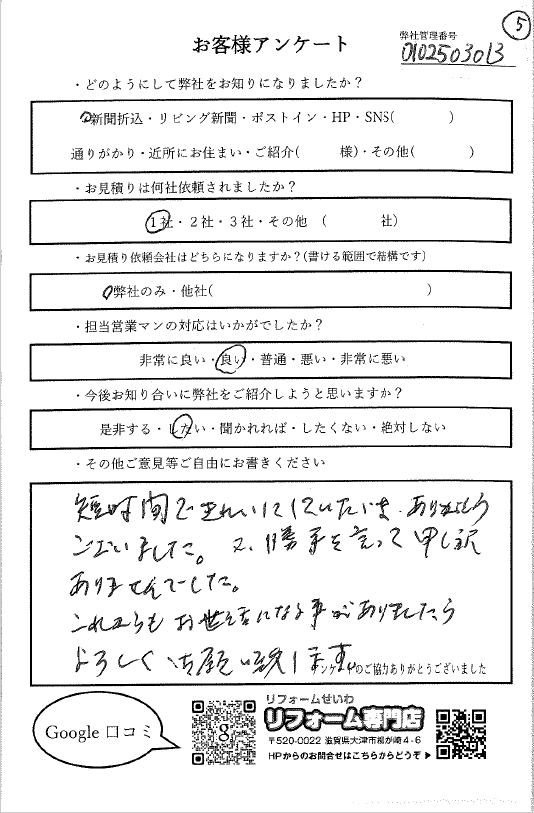 ⑤
お客様アンケート
弊社管理番号
0102503013
・どのようにして弊社をお知りになりましたか？
新聞折込・リビング新聞・ポストイン・HP・SNS(　　　)
通りがかり・近所にお住まい・ご紹介(　　　様)・その他(　　　)
・お見積りは何社依頼されましたか？
1社・2社・3社・その他　(　　　社)
・お見積り依頼会社はどちらになりますか？(書ける範囲で結構です)
弊社のみ・他社(　　　)
・担当営業マンの対応はいかがでしたか？
非常に良い・良い・普通・悪い・非常に悪い
・今後お知り合いに弊社をご紹介しようと思いますか？
是非する・したい・聞かれれば・したくない・絶対しない
・その他ご意見等ご自由にお書きください
短時間できれいにしていただき、ありがとう
ございました。又、勝手を言って申し訳
ありませんでした。
これからもお世話になる事がありましたら
よろしくお願い致します。
アンケートのご協力ありがとうございました
Google 口コミ
g
リフォームせいわ
リフォーム専門店
〒520-0022 滋賀県大津市柳が崎4-6
HPからのお問合せはこちらからどうぞ▶